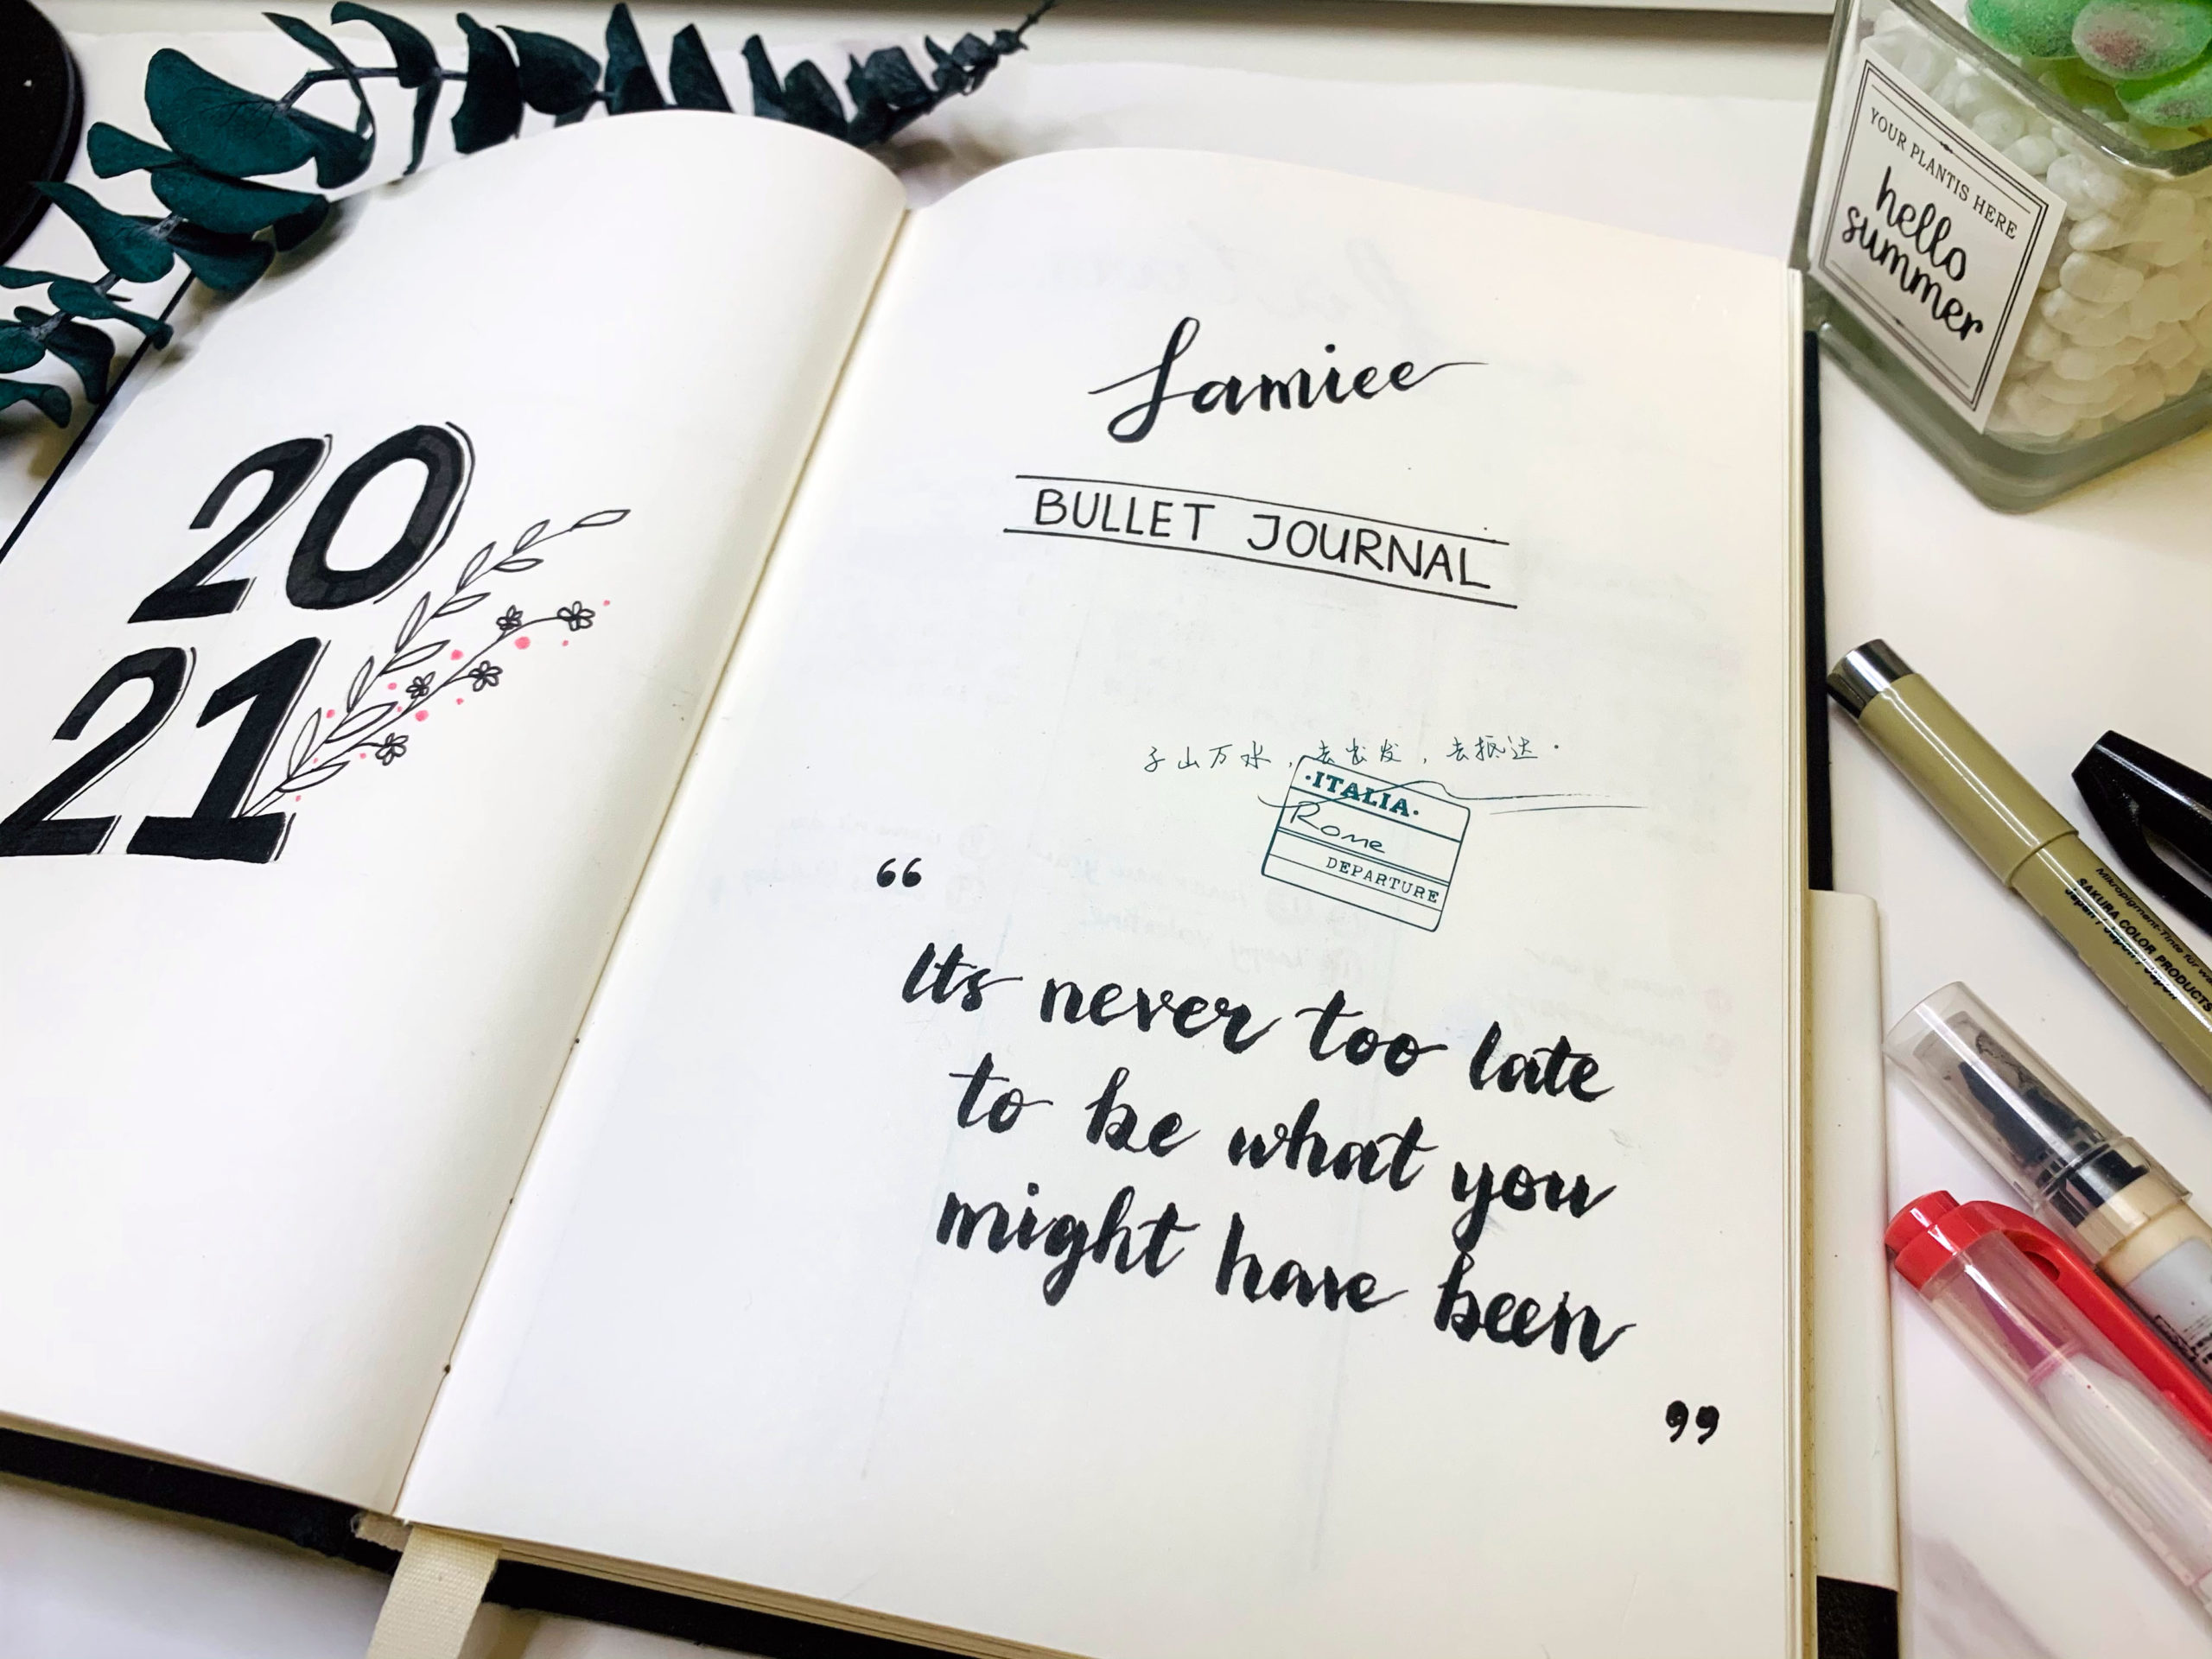 20
21
Jamiee
BULLET JOURNAL
千山万水，去出发，去抵达.
·ITALIA·
Rome
DEPARTURE
“
Its never too late
to be what you
might have been
”
YOUR PLANTIS HERE
hello
summer
Mikropigment-Tinte für
SAKURA COLOR PRODUCTS
Japan / Japon /